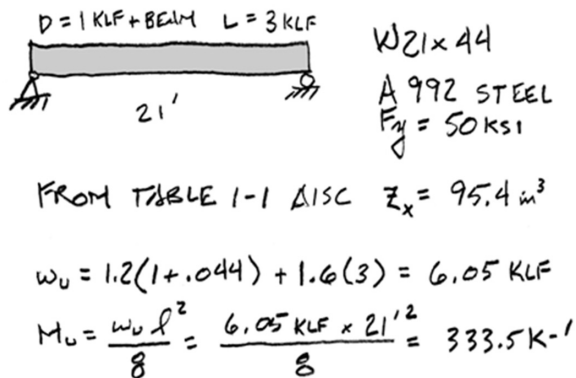 D = 1 KLF + BEAM L = 3 KLF
21'
W21x44
A 992 STEEL
Fy = 50 KSI
FROM TABLE 1-1 AISC Zx = 95.4 in³
wu = 1.2(1+.044) + 1.6(3) = 6.05 KLF
Mu = wu l²/8 = 6.05 KLF x 21'²/8 = 333.5 K-'